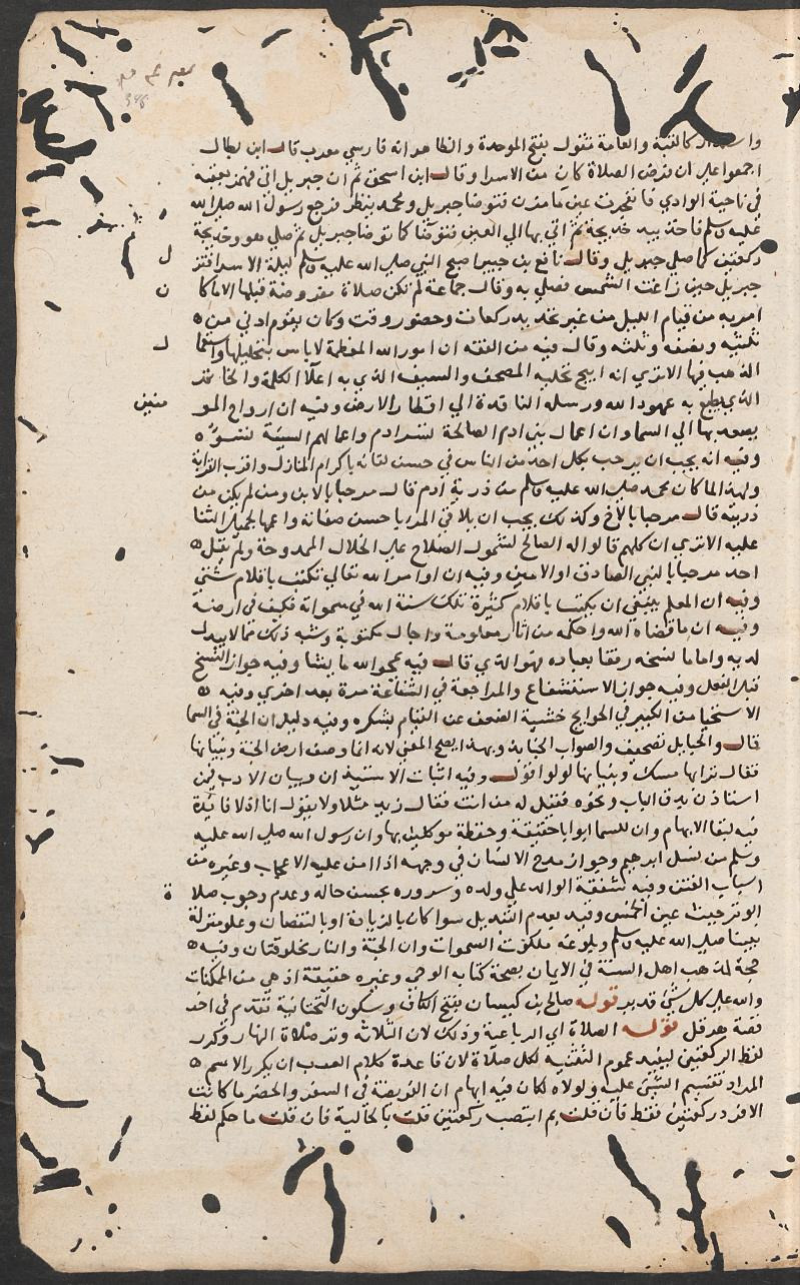 كالقبة والعامة تقول بفتح الموحدة والظاهر انه فارسي معرب قال ابن بطال
اجمعوا على ان فرض الصلاة كان من الاسرا وقال ابن اسحق ثم ان جبريل اتى فهمز بعقبه
في ناحية الوادي فانفجرت عين ما مزن فتوضا جبريل ومحمد ينظر فرجع رسول الله صلى الله
عليه وسلم فاخذ بيد خديجة ثم اتى بها الى العين فتوضا كما توضا جبريل ثم صلى هو وخديجة
ركعتين كما صلى جبريل وقال نافع بن جبير اصبح النبي صلى الله عليه وسلم ليلة الاسرا فنز ل
جبريل حين زاغت الشمس فصلى به وقال جماعة لم تكن صلاة مفروضة قبلها الا ما كا ن
امر به من قيام الليل من غير تحديد ركعات وحضور وقت وكان يقوم ادنى من ه
ثلثيه ونصفه وثلثه وقال فيه من الفقه ان امور الله المعظمة لا باس بتحليلها واستعما ل
الذهب فيها الا ترى انه ابيح تحلية المصحف والسيف الذي به اعلا الكلمة والخاتم
الذي يطبع به عهود الله ورسله النافدة الى اقطار الارض وفيه ان ارواح المو منين
يصعد بها الى السما وان اعمال بني ادم الصالحة تسر ادم واعمالهم السيئة تسوه ه
وفيه انه يجب ان يرحب بكل احد من الناس في حسن لقائه باكرام المنازل واقرب القرابة
ولهذا لما كان محمد صلى الله عليه وسلم من ذرية ادم قال مرحبا بالابن ومن لم يكن من
ذريته قال مرحبا بالاخ وكذلك يجب ان يلاقى المرء باحسن صفاته واعمها بجميل الثنا
عليه الا ترى ان كلهم قالوا له الصالح لشمول الصلاح على الخلال الممدوحة ولم يقل ه
احد مرحبا بالنبي الصادق او الامين وفيه ان اوامر الله تعالى تكتب باقلام شتى
وفيه ان العلم ينبغي ان يكتب باقلام كثيرة تلك سنة الله في سمواته فكيف في ارضه
وفيه ان ما قضاه الله واحكمه من اثار معلومة واجال مكتوبة وشبه ذلك مما لا يبدل
لديه واما ما نسخه رفقا بعباده فهو الذي قال فيه يمحو الله ما يشا وفيه جواز النسخ
قبل الفعل وفيه جواز الاستشفاع والمراجعة في الشفاعة مرة بعد اخرى وفيه ه
الاستحيا من الكبير في الحوايج خشية الضعف عن القيام بشكره وفيه دليل ان الجنة في السما
قال والحبايل تصحيف والصواب الجنابذ وبهذا يصح المعنى لانه انما وصف ارض الجنة وبنيانها
فقال ترابها مسك وبنيانها لولو اقول وفيه اثبات الاستيذان وبيان الادب فيمن
استاذن بدق الباب ونحوه فقيل له من انت فقال زيد مثلا ولا يقول انا اذ لا فائدة
فيه لبقا الابهام وان للسما ابوابا حقيقة وحفظة موكلين بها وان رسول الله صلى الله عليه
وسلم من نسل ابرهيم وجواز مدح الانسان في وجهه اذا امن عليه الاعجاب وغيره من
اسباب الفتن وفيه شفقة الوالد على ولده وسروره بحسن حاله وعدم وجوب صلا ة
الوتر حيث عين الخمس وقيد بعدم التبديل سوا كان بالزيادة او بالنقصان وعلو منزلة
نبينا صلى الله عليه وسلم وبلوغه ملكوت السموات وان الجنة والنار مخلوقتان وفيه ه
حجة لمذهب اهل السنة في الايمان بصحة كتابة الوحي وغيره حقيقة اذ هي من الممكنات
والله على كل شئ قدير قوله صالح بن كيسان بفتح الكاف وسكون التحتانية تقدم في اخر
قصة هرقل قوله الصلاة اي الرباعية وذلك لان الثلاثة وتر صلاة النهار وكرر
لفظ الركعتين ليفيد عموم التثنية لكل صلاة لان قاعدة كلام العرب ان يكرر الاسم ه
المراد تقسيم الشئ عليه ولولاه لكان فيه ايهام ان الفريضة في السفر والحضر ما كانت
الا فرد ركعتين فقط فان قلت بم انتصب ركعتين قلت بالحالية فان قلت ما حكم لفظ